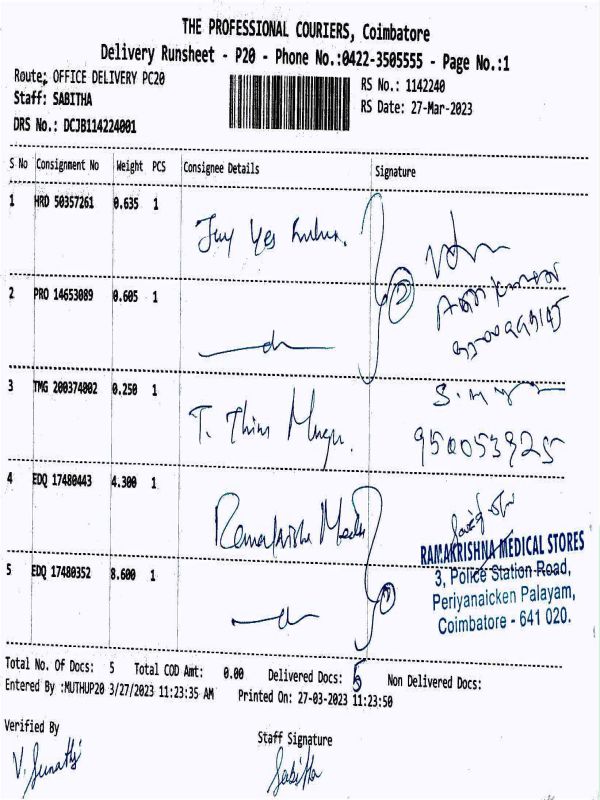 THE PROFESSIONAL COURIERS, Coimbatore
Delivery Runsheet - P20 - Phone No.:0422-3505555 - Page No.:1
Route: OFFICE DELIVERY PC20
RS No.: 1142240
Staff: SABITHA
RS Date: 27-Mar-2023
DRS No.: DCJB114224001
S No Consignment No Weight PCS Consignee Details Signature
1 HRD 50357261 0.635 1
2 PRO 14653089 0.605 1
2
3 TMG 200374002 0.250 1 T.
950053925
4 EDQ 17480443 4.300 1 Ramakrishna
RAMAKRISHNA MEDICAL STORES
3, Police Station Road,
Periyanaicken Palayam,
Coimbatore - 641 020.
5 EDQ 17480352 8.600 1
Total No. Of Docs: 5 Total COD Amt: 0.00 Delivered Docs: 5 Non Delivered Docs:
Entered By :MUTHUP20 3/27/2023 11:23:35 AM Printed On: 27-03-2023 11:23:50
Verified By
Staff Signature
V. Sumathi
Sabitha